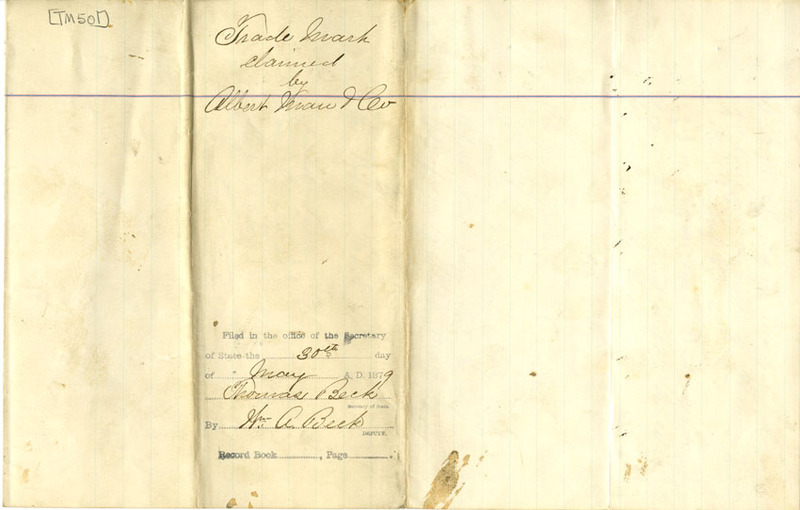 [TM501]
Trade Mark
claimed
by
Albert Mau & Co
Filed in the office of the Secretary
of State the 30th day
of May A. D. 1879
Thomas Beck
Secretary of State
By Wm A. Beck
DEPUTY.
Record Book , Page